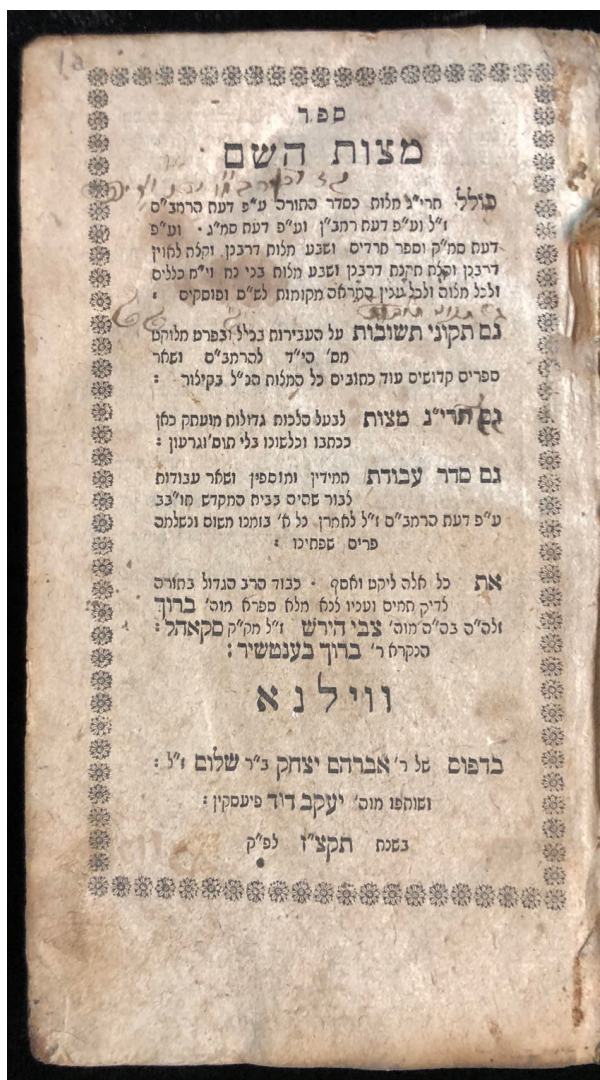 ספר
מצות השם
כולל תרי״ג מצות כסדר התורה ע״פ דעת הרמב״ם
ז״ל וע״פ דעת רמב״ן וע״פ דעת סמ״ג · וע״פ
דעת סמ״ק וספר חרדים ושבע מצות דרבנן וקצת לאוין
דרבנן וקצת תקנת דרבנן ושבע מצות בני נח וי״ח כללים
ולכל מצוה ולכל ענין התראה מקומות לש״ס ופוסקים :
גם תקוני תשובות על העבירות בכלל ובפרט מלוקט
מס׳ הי״ד להרמב״ם ושאר
ספרים קדושים עוד כתובים כל המצות הנ״ל בקיצור :
גם תרי״ג מצות לבעל הלכות גדולות מועתק כאן
ככתבו וכלשונו בלי תוס׳ וגרעון :
גם סדר עבודת תמידין ומוספין ושאר עבודות
צבור שהיה בבית המקדש תו״בב
ע״פ דעת הרמב״ם ז״ל לאמרן כל א׳ בזמנו משום ונשלמה
פרים שפתינו :
את כל אלה ליקט ואסף · כבוד הרב הגדול בתורה
צדיק תמים ועניו צנא מלא ספרא מוה׳ ברוך
זלה״ה בה״ה מוה׳ צבי הירש ז״ל מק״ק סקאהל :
הנקרא ר׳ ברוך בענטשיר :
ווילנא
בדפוס של ר׳ אברהם יצחק ב״ר שלום ז״ל :
ושותפו מוה׳ יעקב דוד פיעסקין :
בשנת תקצ״ז לפ״ק